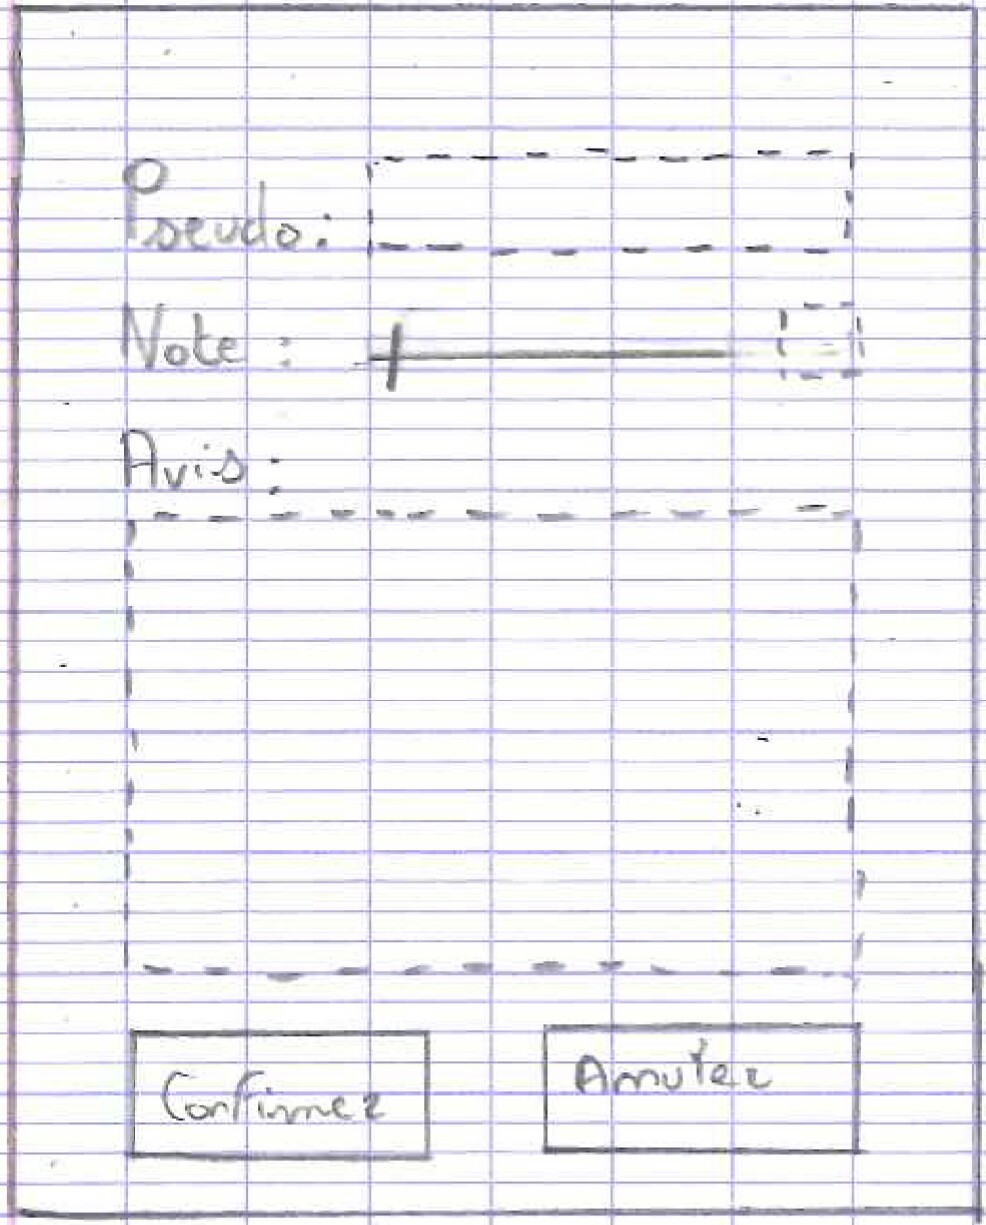 Pseudo :
Note :
Avis :
Confirmer
Annuler